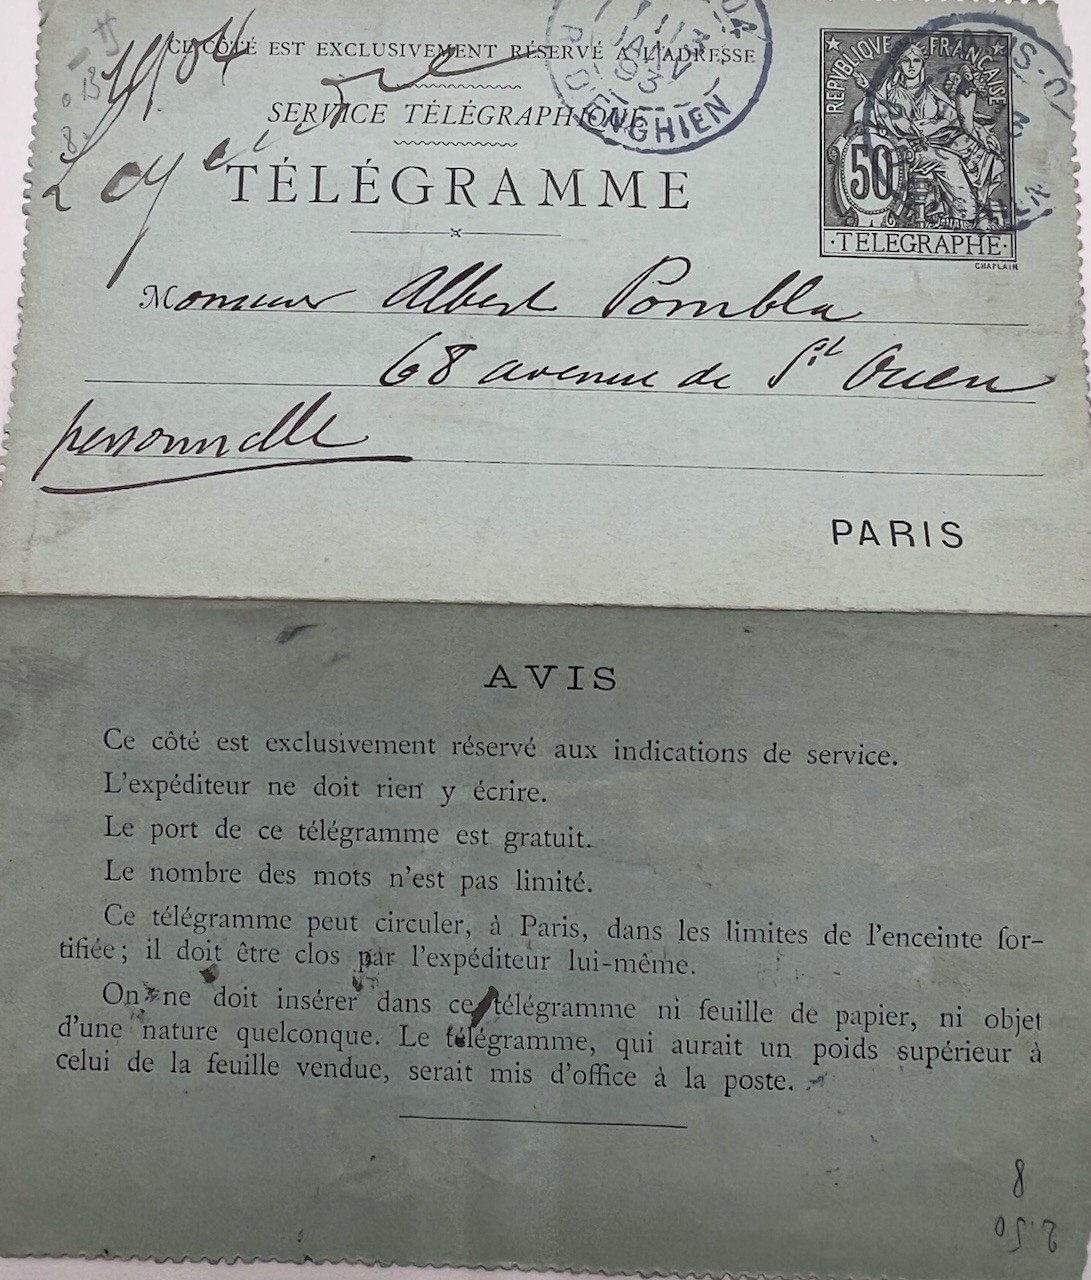 CE CÔTÉ EST EXCLUSIVEMENT RÉSERVÉ A L'ADRESSE
1904
SERVICE TÉLÉGRAPHIQUE
TÉLÉGRAMME
R. D'ENGHIEN
REPUBLIQUE FRANÇAISE
50
TELEGRAPHE
CHAPLAIN
Monsieur Albert Pombla
68 avenue de St Ouen
personnelle
PARIS
AVIS
Ce côté est exclusivement réservé aux indications de service.
L'expéditeur ne doit rien y écrire.
Le port de ce télégramme est gratuit.
Le nombre des mots n'est pas limité.
Ce télégramme peut circuler, à Paris, dans les limites de l'enceinte for-
tifiée; il doit être clos par l'expéditeur lui-même.
On ne doit insérer dans ce télégramme ni feuille de papier, ni objet
d'une nature quelconque. Le télégramme, qui aurait un poids supérieur à
celui de la feuille vendue, serait mis d'office à la poste.
8
2.50